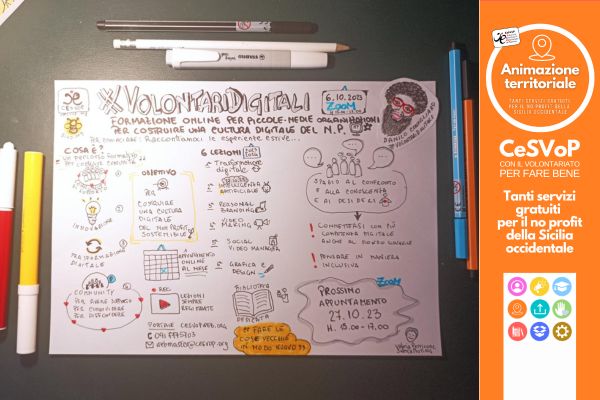 CeSVoP
#VOLONTARIDIGITALI
6.10.2023
ZOOM
FORMAZIONE ONLINE PER PICCOLE-MEDIE ORGANIZZAZIONI
PER COSTRUIRE UNA CULTURA DIGITALE DEL N.P.
PER COMINCIARE: RACCONTIAMOCI LE ESPERIENZE ESTIVE...
COSA È?
UN PERCORSO FORMATIVO
INNOVAZIONE
DIGITALE
COMMUNITY
PER CONDIVIDERE
PER DIFFONDERE
OBIETTIVO
PER
COSTRUIRE
UNA CULTURA
DIGITALE
DEL NON PROFIT
SOSTENIBILE
1 APPUNTAMENTO
ONLINE
AL MESE
REC
LEZIONI
SEMPRE
REGISTRATE
6 LEZIONI
TRASFORMAZIONE
DIGITALE
INTELLIGENZA
ARTIFICIALE
PERSONAL
BRANDING
VIDEO
MAKING
SOCIAL
MEDIA MANAGER
GRAFICA E
DESIGN
BIBLIOTECA
DEDICATA
PORTALE CESVOPWEB.ORG
webmaster@cesvop.org
"FARE LE
COSE VECCHIE
IN MODO NUOVO"
SPAZIO AL CONFRONTO
E ALLA CONOSCENZA
E AI DESIDERI
CONNETTERSI CON PIÙ
COMPETENZA DIGITALE
ANCHE AL MONDO GIOVANILE
PENSARE IN MANIERA
INCLUSIVA
ZOOM
PROSSIMO
APPUNTAMENTO
27.10.23
H. 15.00-17.00
CeSVoP
Animazione
territoriale
TANTI SERVIZI GRATUITI
PER IL NO PROFIT DELLA
SICILIA OCCIDENTALE
CeSVoP
CON IL VOLONTARIATO
PER FARE BENE
Tanti servizi
gratuiti
per il no profit
della Sicilia
occidentale